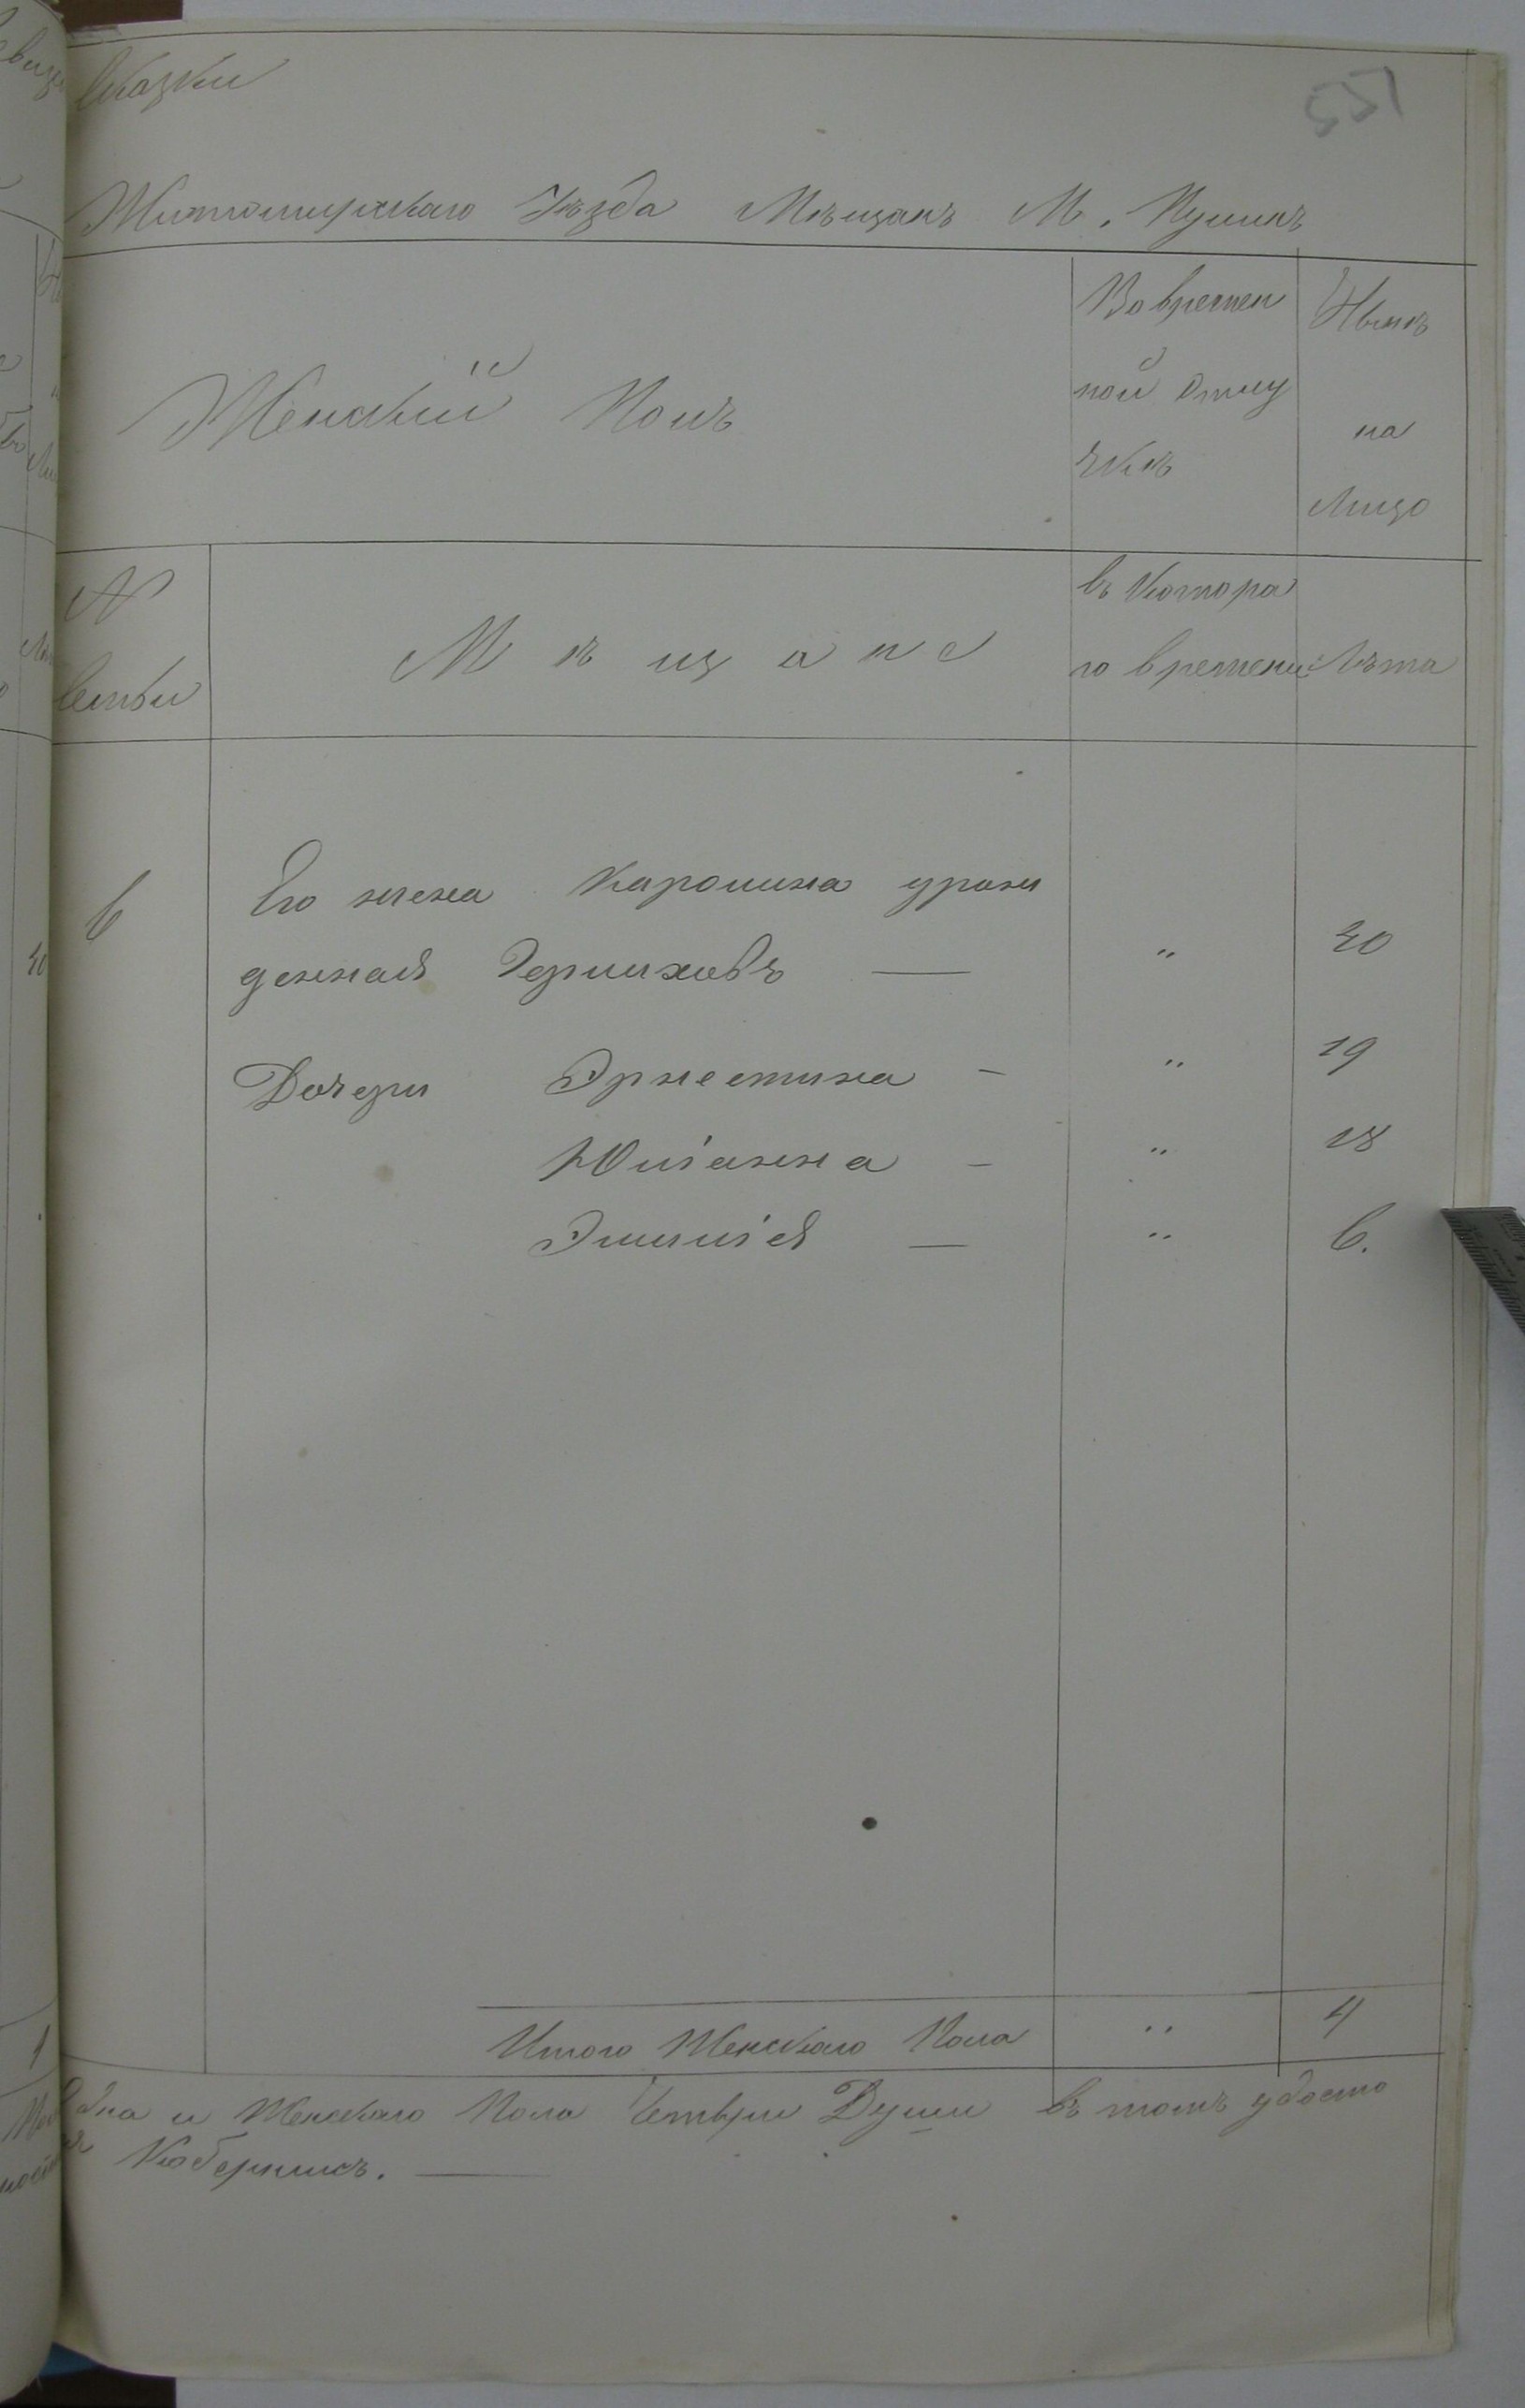 Сказки
551
Житомирскаго Уѣзда Мѣщанъ М. Пулинъ
Женскій Полъ
Во времен
ной отлу
чкѣ
Нынѣ
на
лицо
№
семьи
Мѣщане
въ котора
го времени
Лѣта
6 Его жена Каролина урож
денная
— " 40
Дочери Эрнестина - " 19
Юліанна - " 18
Эмилія — " 6.
Итого Женскаго Пола " 4
и Женскаго Пола Четыри Души въ томъ удосто